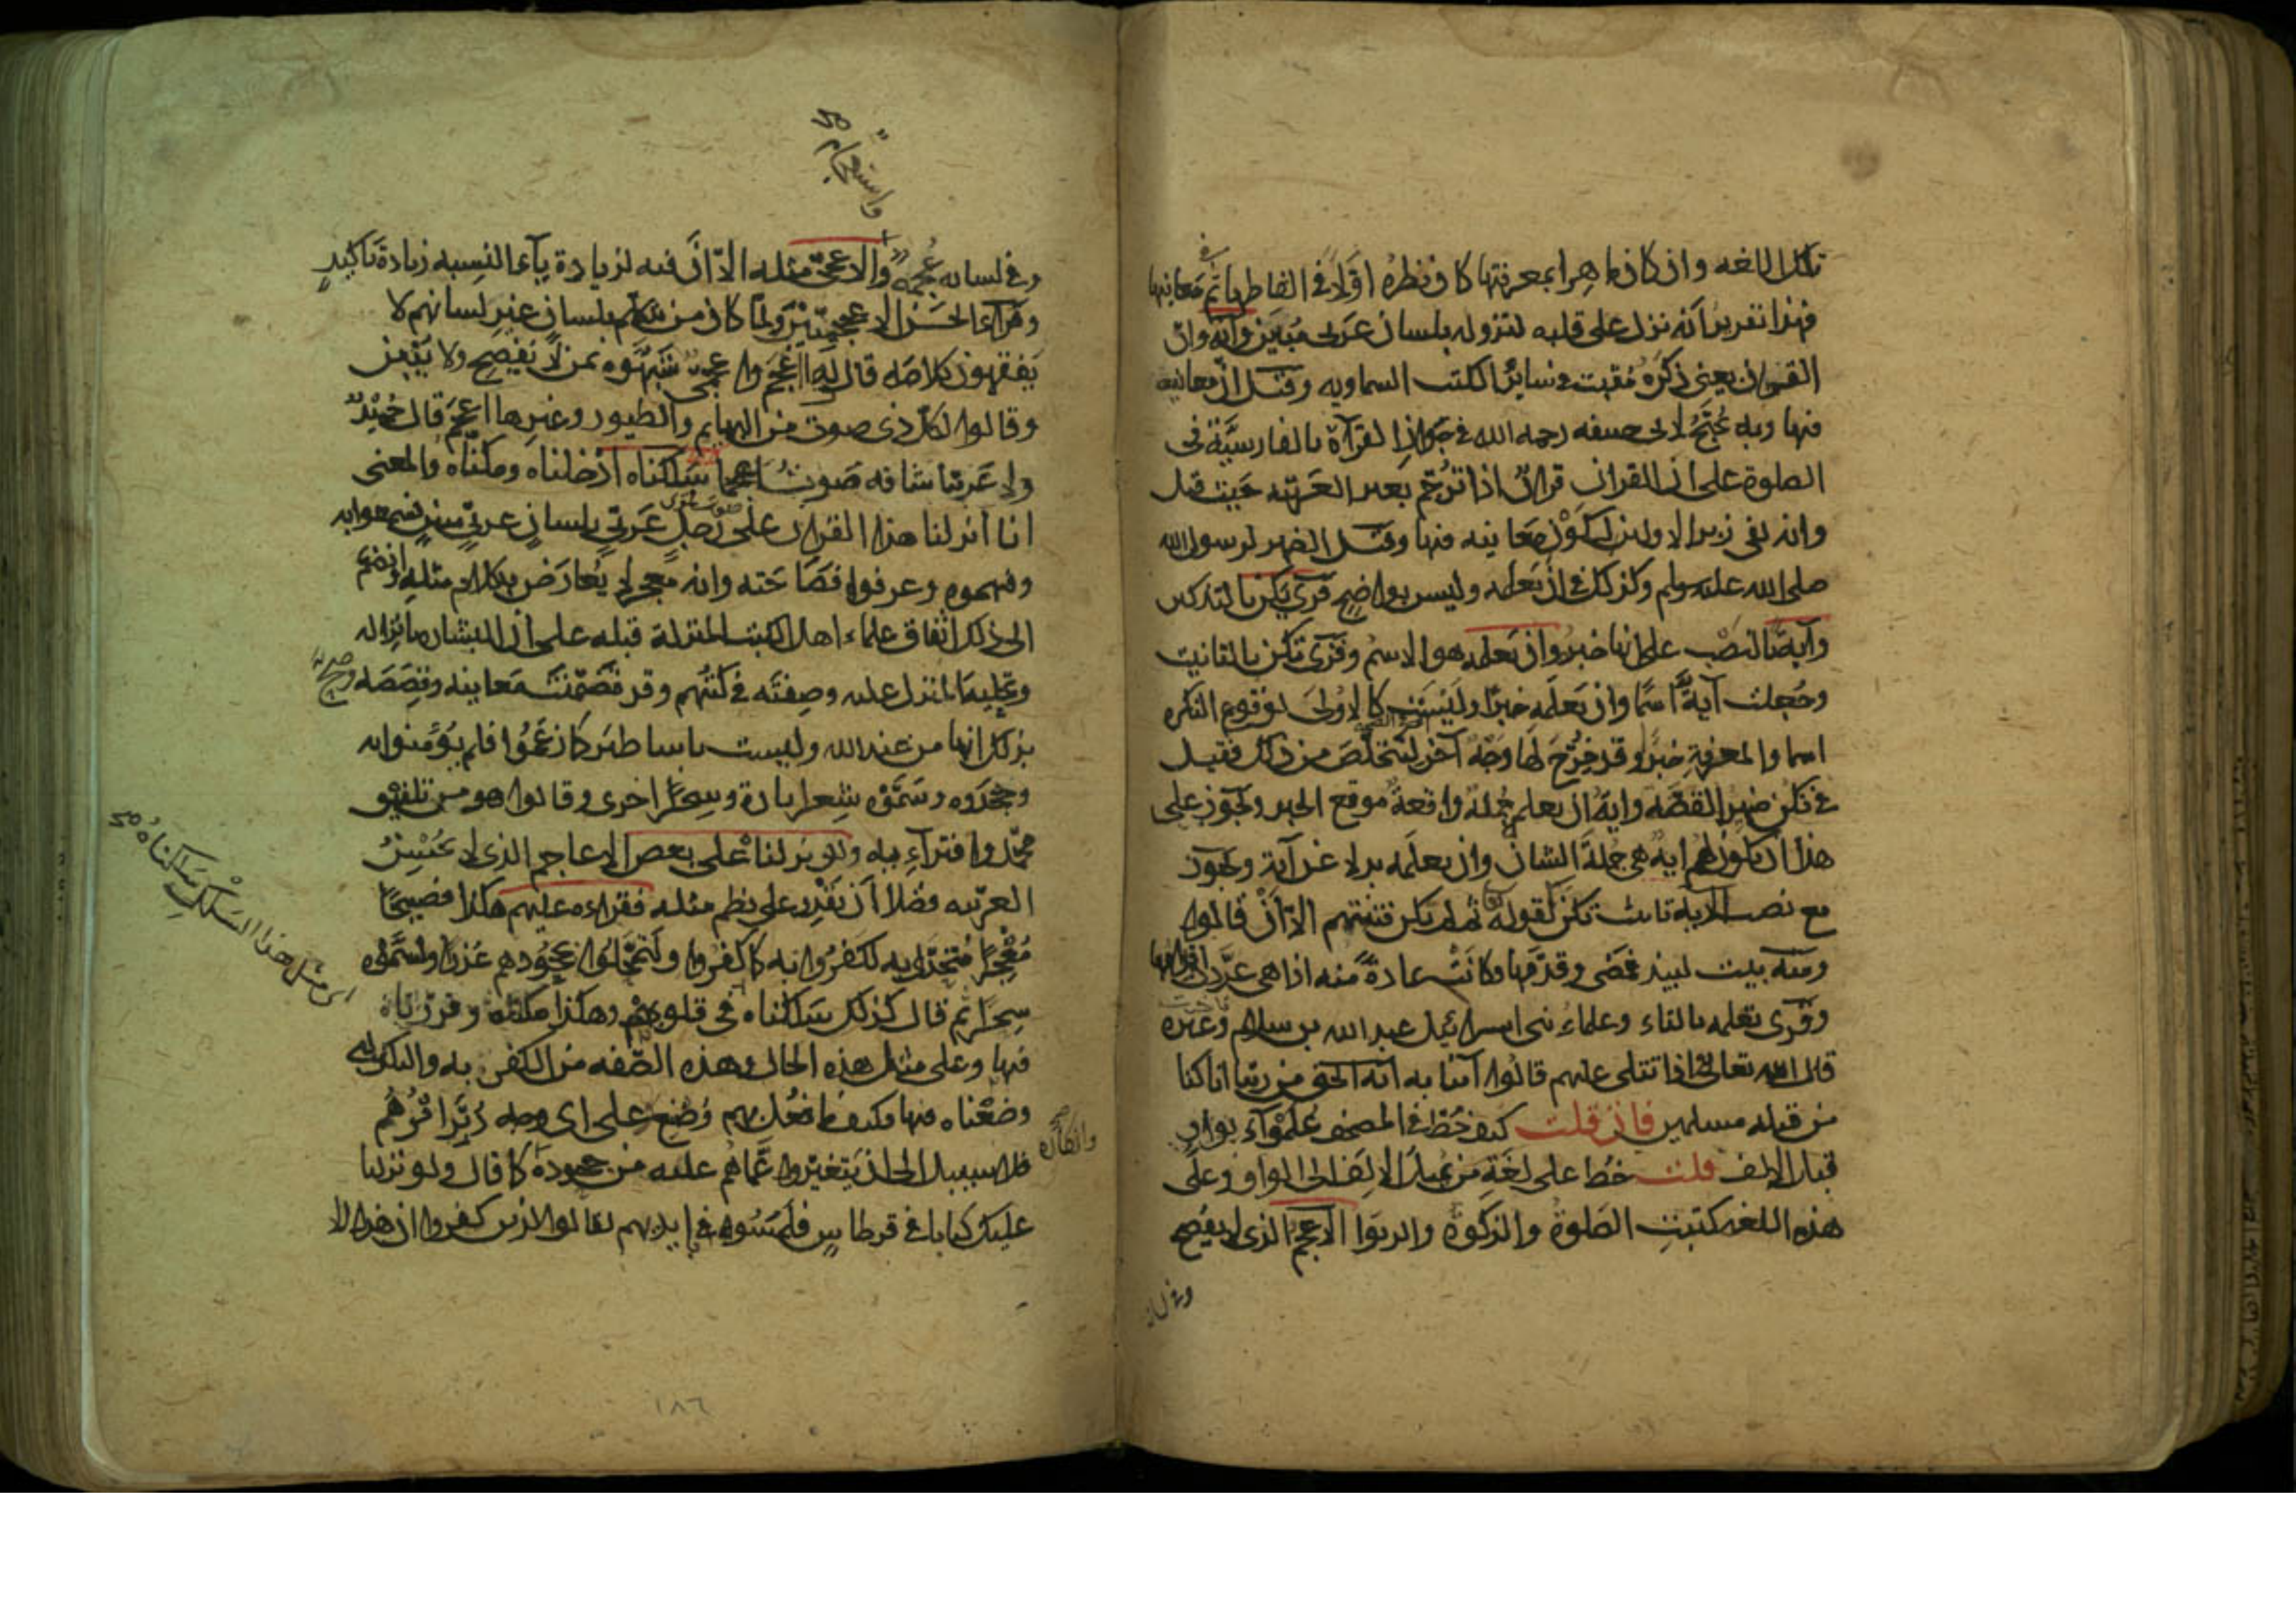 تلك اللغه وان كان ماهرا بمعرفتها كان نظره اولا فى الفاظها ثم فى معانيها
فهذا تقرير انه نزل على قلبه لنزوله بلسان عربى مبين وانه وان
القرآن يعنى ذكره مثبت فى سائر الكتب السماويه وقيل ان معانيه
فيها وبه يحتج لابى حنيفه رحمه الله فى جواز القرآة بالفارسيّة فى
الصلوة على ان القران قران اذا ترجم بغير العربيّه حيث قيل
وانه لفى زبر الاولين لكون معانيه فيها وقيل الضمير لرسول الله
صلى الله عليه وسلم وكذلك فى ان يعلمه وليس بواضح قرئ يكن بالتذكير
وآية بالنصب على انها خبره وان يعلمه هو الاسم وقرئ تكن بالتانيث
وجعلت آية اسمًا وان يعلمه خبرًا وليست كالاولى لوقوع النكره
اسما والمعرفة خبرا وقد خرّج لها وجه آخر ليتخلّص من ذلك فقيل
فى تكن ضمير القصّه واية ان يعلمه جملة واقعة موقع الخبر ويجوز على
هذا ان يكون لهم اية هى جملة الشان وان يعلمه بدلا عن آية ويجوز
مع نصب الاية تانيث تكن كقوله ثم لم تكن فتنتهم الا ان قالوا
ومنه بيت لبيد فمضى وقدّمها وكانت عادةً منه اذا هى عرّدت اقدامها
وقرئ تعلمه بالتاء وعلماء بنى اسرائيل عبد الله بن سلام وغيره
قال الله تعالى واذا تتلى عليهم قالوا آمنا به انه الحق من ربنا انا كنا
من قبله مسلمين فان قلت كيف خط فى المصحف علموآء بواو
قبل الالف قلت خط على لغة من يميل الالف الى الواو وعلى
هذه اللغه كتبت الصلوة والزكوة والربوا الاعجم الذى لا يفصح
وفى لسانه
وفى لسانه عجمة والاعجمىّ مثله الا انّ فيه لزيادة يآء النسبه زيادة تاكيد
واستعجام صح
وقرآء الحسن الاعجميّين ولمّا كان من تكلم بلسان غير لسانهم لا
يفقهون كلامه قالوا له اعجم واعجمىّ شبّهوه بمن لا يفصح ولا يبين
وقالوا لكل ذى صوت من البهايم والطيور وغيرها اعجم قال حميدٌ
ولا عربيّا شاقه صوت اعجما سلكناه ادخلناه ومكنّاه والمعنى
انا انزلنا هذا القران على رجل عربىّ بلسان عربىّ مبين فسمعوا به
وفهموه وعرفوا فصاحته وانه معجز لا يعارض بكلام مثله وانضم
الى ذلك اتفاق علماء اهل الكتب المنزلة قبله على ان البشارة بانزاله
وتحلية المنزل عليه وصفته فى كتبهم وقد تضمّنت معانيه وقصصه وصح
بذلك انها من عند الله وليست باساطير كما زعموا فلم يؤمنوا به
وجحدوه وسمّوه شعرا تارة وسحرًا اخرى وقالوا هو من تلفيق
محمّد وافترآءِ به ولو نزلناه على بعض الاعاجم الذى لا يحسن
العربيّه فضلا ان يقدر على نظم مثله فقراه عليهم هكذا فصيحًا
معجزًا متحدّى به لكفروا به كما كفروا ولتمحّلوا لجحودهم عذرًا ولسمّوه
سحرًا ثم قال كذلك سلكناه فى قلوبهم وهكذا مكنّاه وقررناه
اى مثل هذا السلك سلكناه صح
فيها وعلى مثل هذه الحال وهذه الصّفه من الكفر به والتكذيب له
وضعناه فيها فكيف ما فعل بهم وصُنع وعلى اى وجه دُبّر امرهم
فلا سبيل الى ان يتغيّروا عمّا هُم عليه من جحوده كما قال ولو نزلنا
وانكاره صح
عليك كتابا فى قرطاس فلمسوه بايديهم لقال الذين كفروا ان هذا الا
١٨٦